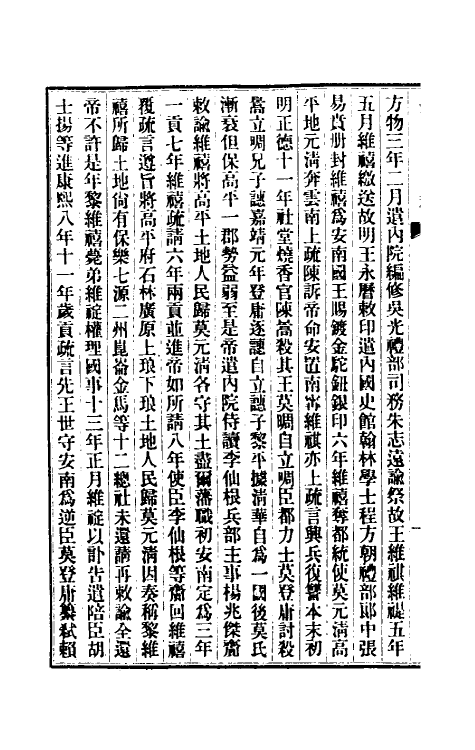 方物三年二月遣內院編修吳光禮部司務朱志遠諭祭故王維祺維禔五年
五月維禧繳送故明王永曆敕印遣內國史館翰林學士程方朝禮部郎中張
易賁册封維禧爲安南國王賜鍍金駝鈕銀印六年維禧奪都統使莫元淸高
平地元淸奔雲南上疏陳訴帝命安置南甯維祺亦上疏言興兵復讐本末初
明正德十一年社堂燒香官陳暠殺其王莫晭自立晭臣都力士莫登庸討殺
暠立晭兄子譓嘉靖元年登庸逐譓自立譓子黎平據淸華自爲一國後莫氏
漸衰但保高平一郡勢益弱至是帝遣內院侍讀李仙根兵部主事楊兆傑齎
敕諭維禧將高平土地人民歸莫元淸各守其土盡爾藩職初安南定爲三年
一貢七年維禧疏請六年兩貢並進帝如所請八年使臣李仙根等齎回維禧
覆疏言遵旨將高平府石林廣原上琅下琅土地人民歸莫元淸因奏稱黎維
禧所歸土地尙有保樂七源二州崑崙金馬等十二總社未還請再敕諭全還
帝不許是年黎維禧薨弟維𥘺權理國事十三年正月維𥘺以訃告遣陪臣胡
士揚等進康熙八年十一年歲貢疏言先王世守安南爲逆臣莫登庸纂弑賴